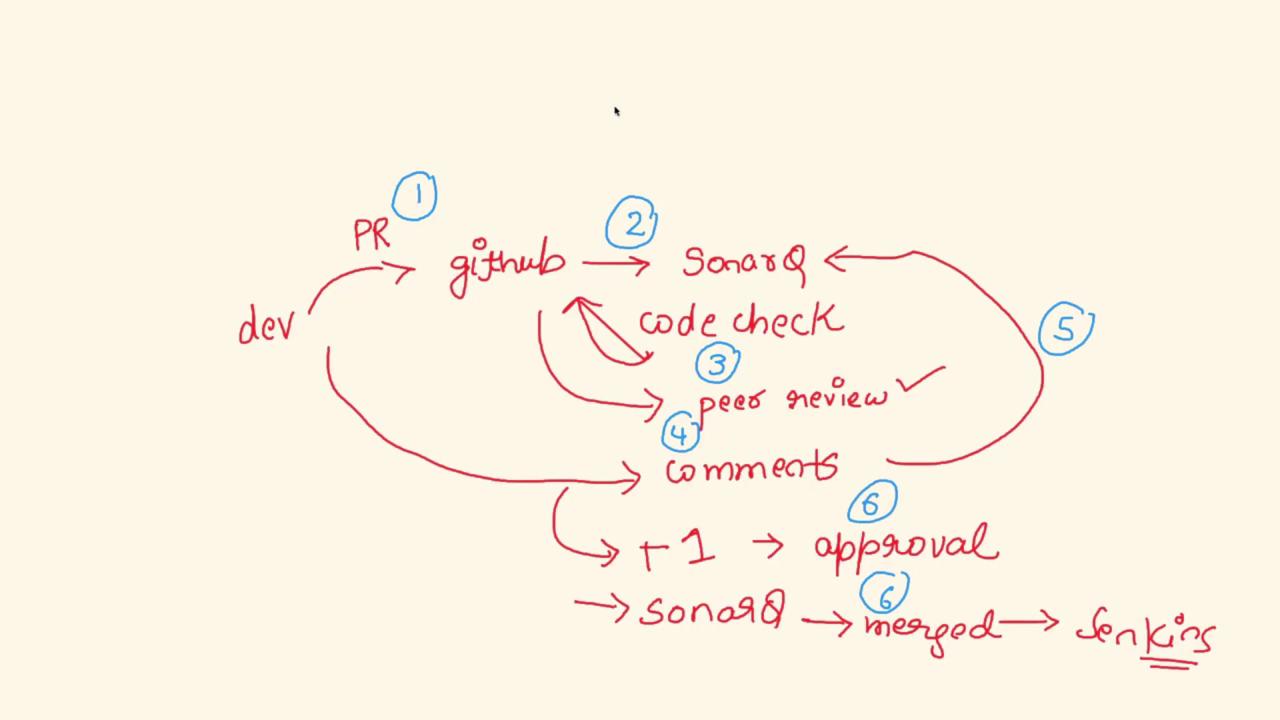 1
PR
2
github → SonarQ
dev
code check
5
3
peer review ✓
4
comments
6
+1 → approval
6
→ sonarQ → merged → Jenkins